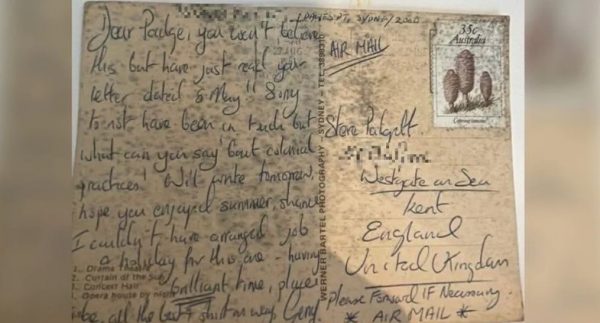 Dear Padge, you won't believe
this but have just read your
letter dated 5 May" Sorry
to not have been in touch but
what can you say 'bout colonial
practices! Will write tomorrow,
hope you enjoyed summer, shame
I couldn't have arranged job
& holiday for this one - having
brilliant time, place
be, all the best shirt on way
1. Drama Theatre
2. Curtain of the Sun
3. Concert Hall
4. Opera house by night
WERNER BARTEL PHOTOGRAPHY SYDNEY TEL.
SYDNEY/2000
AIR MAIL
35c
Australia
Steve Padgett.
Westgate on Sea
Kent
England
United Kingdom
Please Forward IF Necessary
* AIR MAIL *